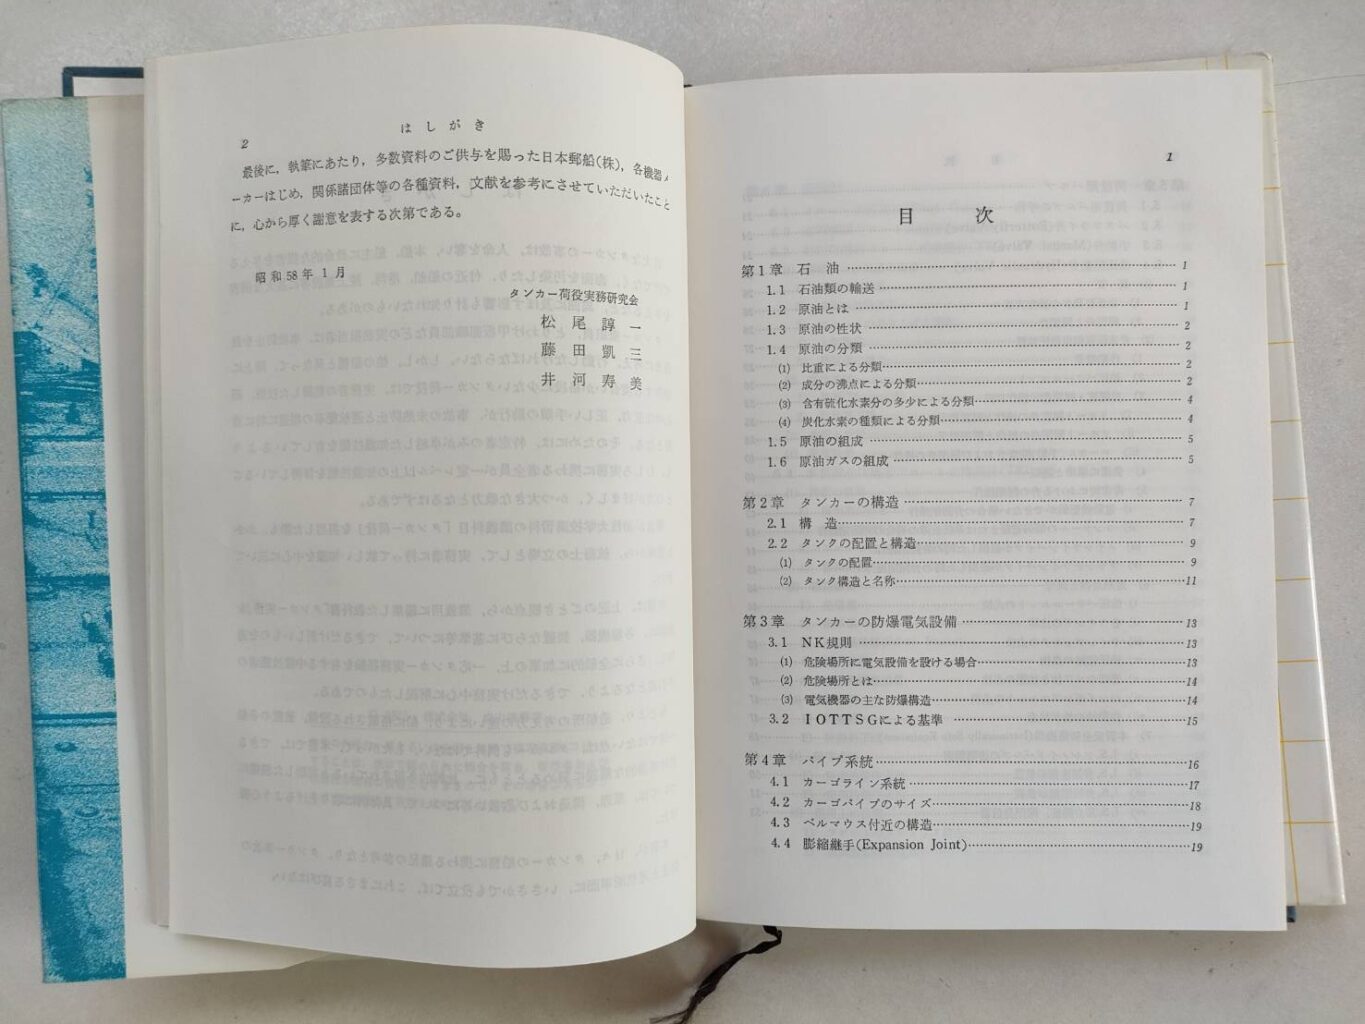 2
はしがき
最後に，執筆にあたり，多数資料のご供与を賜った日本郵船(株)，各機器メ
ーカーはじめ，関係諸団体等の各種資料，文献を参考にさせていただいたこと
に，心から厚く謝意を表する次第である。
昭和58年1月
タンカー荷役実務研究会
松尾諄一
藤田凱三
井河寿美
1
目次
第1章 石油 …… 1
1.1 石油類の輸送 …… 1
1.2 原油とは …… 1
1.3 原油の性状 …… 2
1.4 原油の分類 …… 2
(1) 比重による分類 …… 2
(2) 成分の沸点による分類 …… 2
(3) 含有硫化水素分の多少による分類 …… 4
(4) 炭化水素の種類による分類 …… 4
1.5 原油の組成 …… 5
1.6 原油ガスの組成 …… 5
第2章 タンカーの構造 …… 7
2.1 構造 …… 7
2.2 タンクの配置と構造 …… 9
(1) タンクの配置 …… 9
(2) タンク構造と名称 …… 11
第3章 タンカーの防爆電気設備 …… 13
3.1 NK規則 …… 13
(1) 危険場所に電気設備を設ける場合 …… 13
(2) 危険場所とは …… 14
(3) 電気機器の主な防爆構造 …… 14
3.2 IOTTSGによる基準 …… 15
第4章 パイプ系統 …… 16
4.1 カーゴライン系統 …… 17
4.2 カーゴパイプのサイズ …… 18
4.3 ベルマウス付近の構造 …… 19
4.4 膨縮継手(Expansion Joint) …… 19